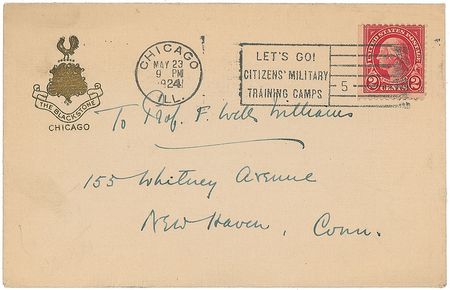 THE BLACKSTONE
CHICAGO
CHICAGO
MAY 23
9 PM
1924
ILL.
LET'S GO!
CITIZENS' MILITARY
TRAINING CAMPS
5
UNITED STATES POSTAGE
2 CENTS 2
To Prof. F. Wells Williams
155 Whitney Avenue
New Haven, Conn.